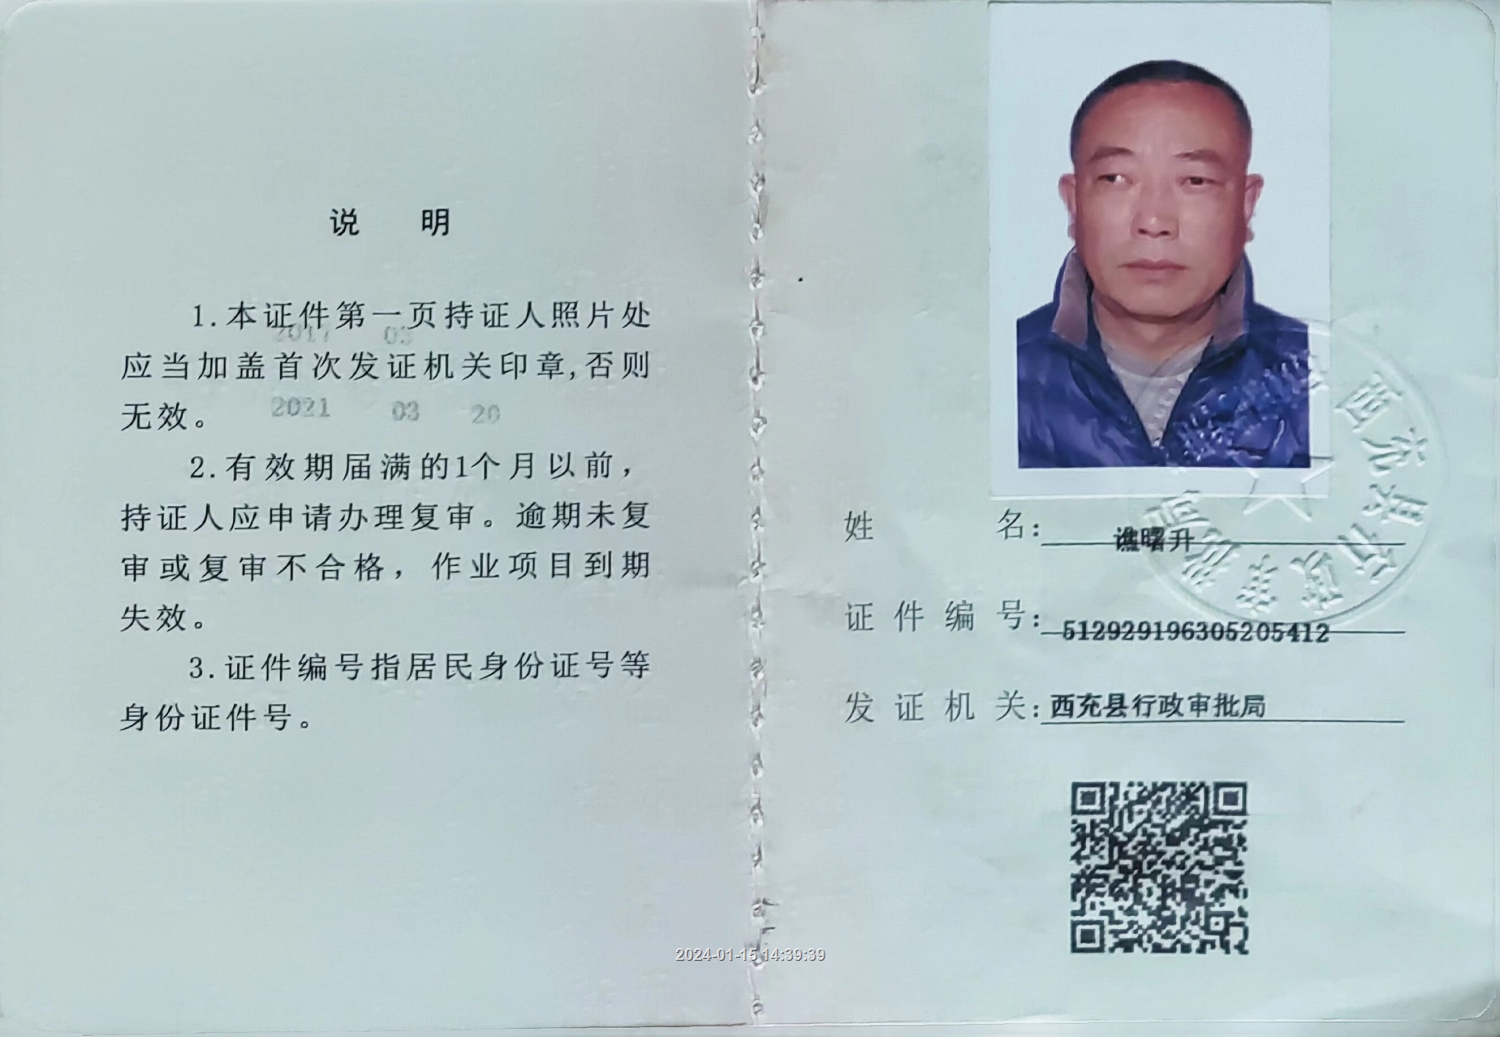 说 明
1.本证件第一页持证人照片处
2017 03
应当加盖首次发证机关印章,否则
无效。
2021 03 20
2.有效期届满的1个月以前，
持证人应申请办理复审。逾期未复
审或复审不合格，作业项目到期
失效。
3.证件编号指居民身份证号等
身份证件号。
西充县行政审批局
姓 名： 谯曙升
证件编号： 512929196305205412
发证机关： 西充县行政审批局
2024-01-15 14:39:39